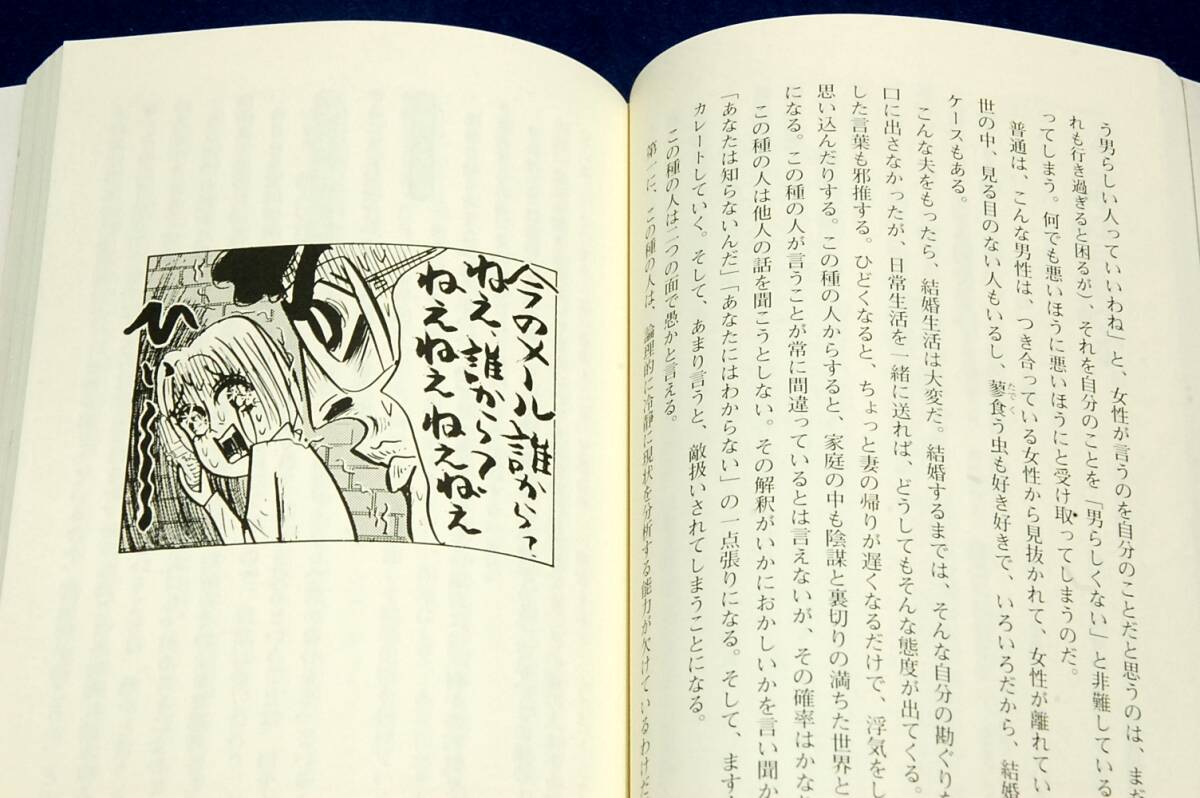 う男らしい人っていいわね」と、女性が言うのを自分のことだと思うのは、まだ
れも行き過ぎると困るが）、それを自分のことを「男らしくない」と非難している
ってしまう。何でも悪いほうに悪いほうにと受け取ってしまうのだ。
普通は、こんな男性は、つき合っている女性から見抜かれて、女性が離れてい
世の中、見る目のない人もいるし、蓼食う虫も好き好きで、いろいろだから、結婚
たでく
ケースもある。
こんな夫をもったら、結婚生活は大変だ。結婚するまでは、そんな自分の勘ぐりを
口に出さなかったが、日常生活を一緒に送れば、どうしてもそんな態度が出てくる。
した言葉も邪推する。ひどくなると、ちょっと妻の帰りが遅くなるだけで、浮気をし
思い込んだりする。この種の人からすると、家庭の中も陰謀と裏切りの満ちた世界と
になる。この種の人が言うことが常に間違っているとは言えないが、その確率はかな
この種の人は他人の話を聞こうとしない。その解釈がいかにおかしいかを言い聞か
「あなたは知らないんだ」「あなたにはわからない」の一点張りになる。そして、ます
カレートしていく。そして、あまり言うと、敵扱いされてしまうことになる。
この種の人は二つの面で愚かと言える。
第一に、この種の人は、論理的に冷静に現状を分析する能力が欠けているわけだ
今のメール誰から？
ねえ誰からって
ねえねえねえねえ
ひいぃ